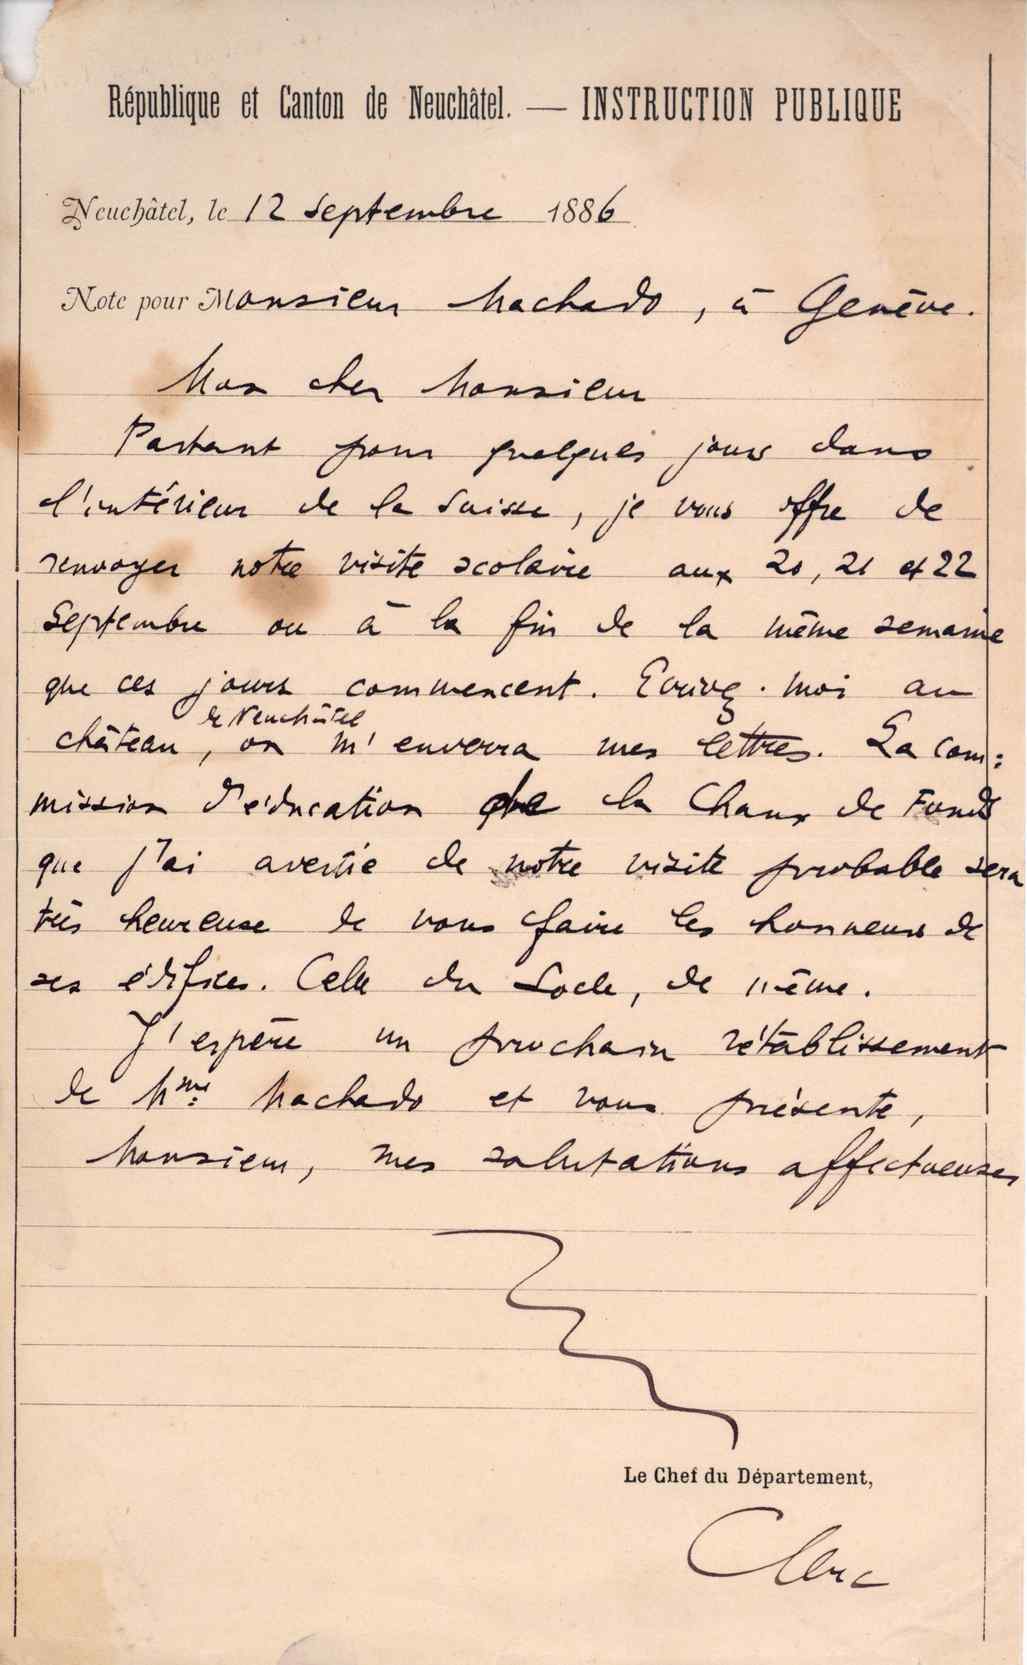 République et Canton de Neuchâtel. — INSTRUCTION PUBLIQUE
Neuchâtel, le 12 Septembre 1886
Note pour Monsieur Machado, à Genève.
Mon cher Monsieur
Partant pour quelques jours dans
l'intérieur de la Suisse, je vous offre de
renvoyer notre visite scolaire aux 20, 21 et 22
Septembre ou à la fin de la même semaine
que ces jours commencent. Ecrivez-moi au
de Neuchâtel
château, on m'enverra mes lettres. La com:
mission d'éducation de la Chaux de Fonds
que j'ai avertie de notre visite probable sera
très heureuse de vous faire les honneurs de
ses édifices. Celle du Locle, de même.
J'espère un prochain rétablissement
de Mme: Machado et vous présente,
Monsieur, mes salutations affectueuses
Le Chef du Département,
Clerc